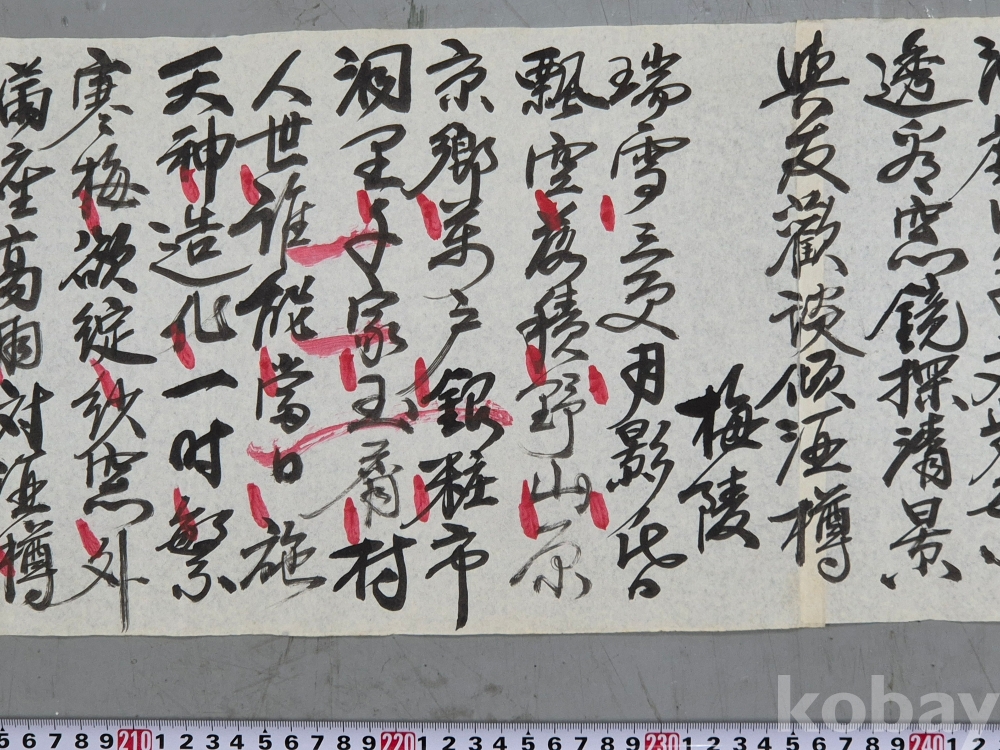 透窓鏡探清景
與友歡談傾酒樽
梅陵
瑞雪三更月影昏
飄空落積野山原
京鄉萬戶銀粧市
洞里千家玉屑村
人世誰能當日施
天神造化一时繁
寒梅欲綻紗窓外
滿座高朋对酒樽
5 6 7 8 9 210 1 2 3 4 5 6 7 8 9 220 1 2 3 4 5 6 7 8 9 230 1 2 3 4 5 6 7 8 9 240 1 2
kobay